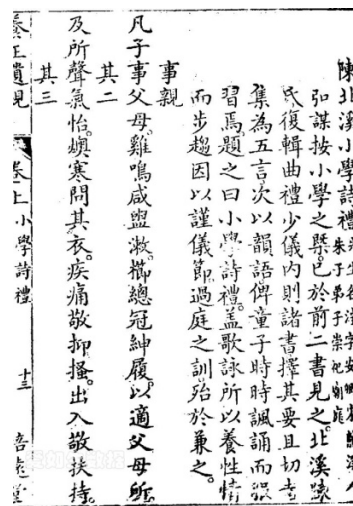 陳北溪小學詩禮
弘謀按小學之槩已於前二書見之北溪
氏復輯曲禮少儀內則諸書擇其要且切者
集為五言次以韻語俾童子時時諷誦而
習焉題之曰小學詩禮蓋歌詠所以養性情
而步趨因以謹儀節過庭之訓殆於兼之
事親
凡子事父母雞鳴咸盥漱櫛總冠紳履以適父母所
其二
及所聲氣怡燠寒問其衣疾痛敬抑搔出入敬扶持
其三
養正遺規 卷上 小學詩禮 十三